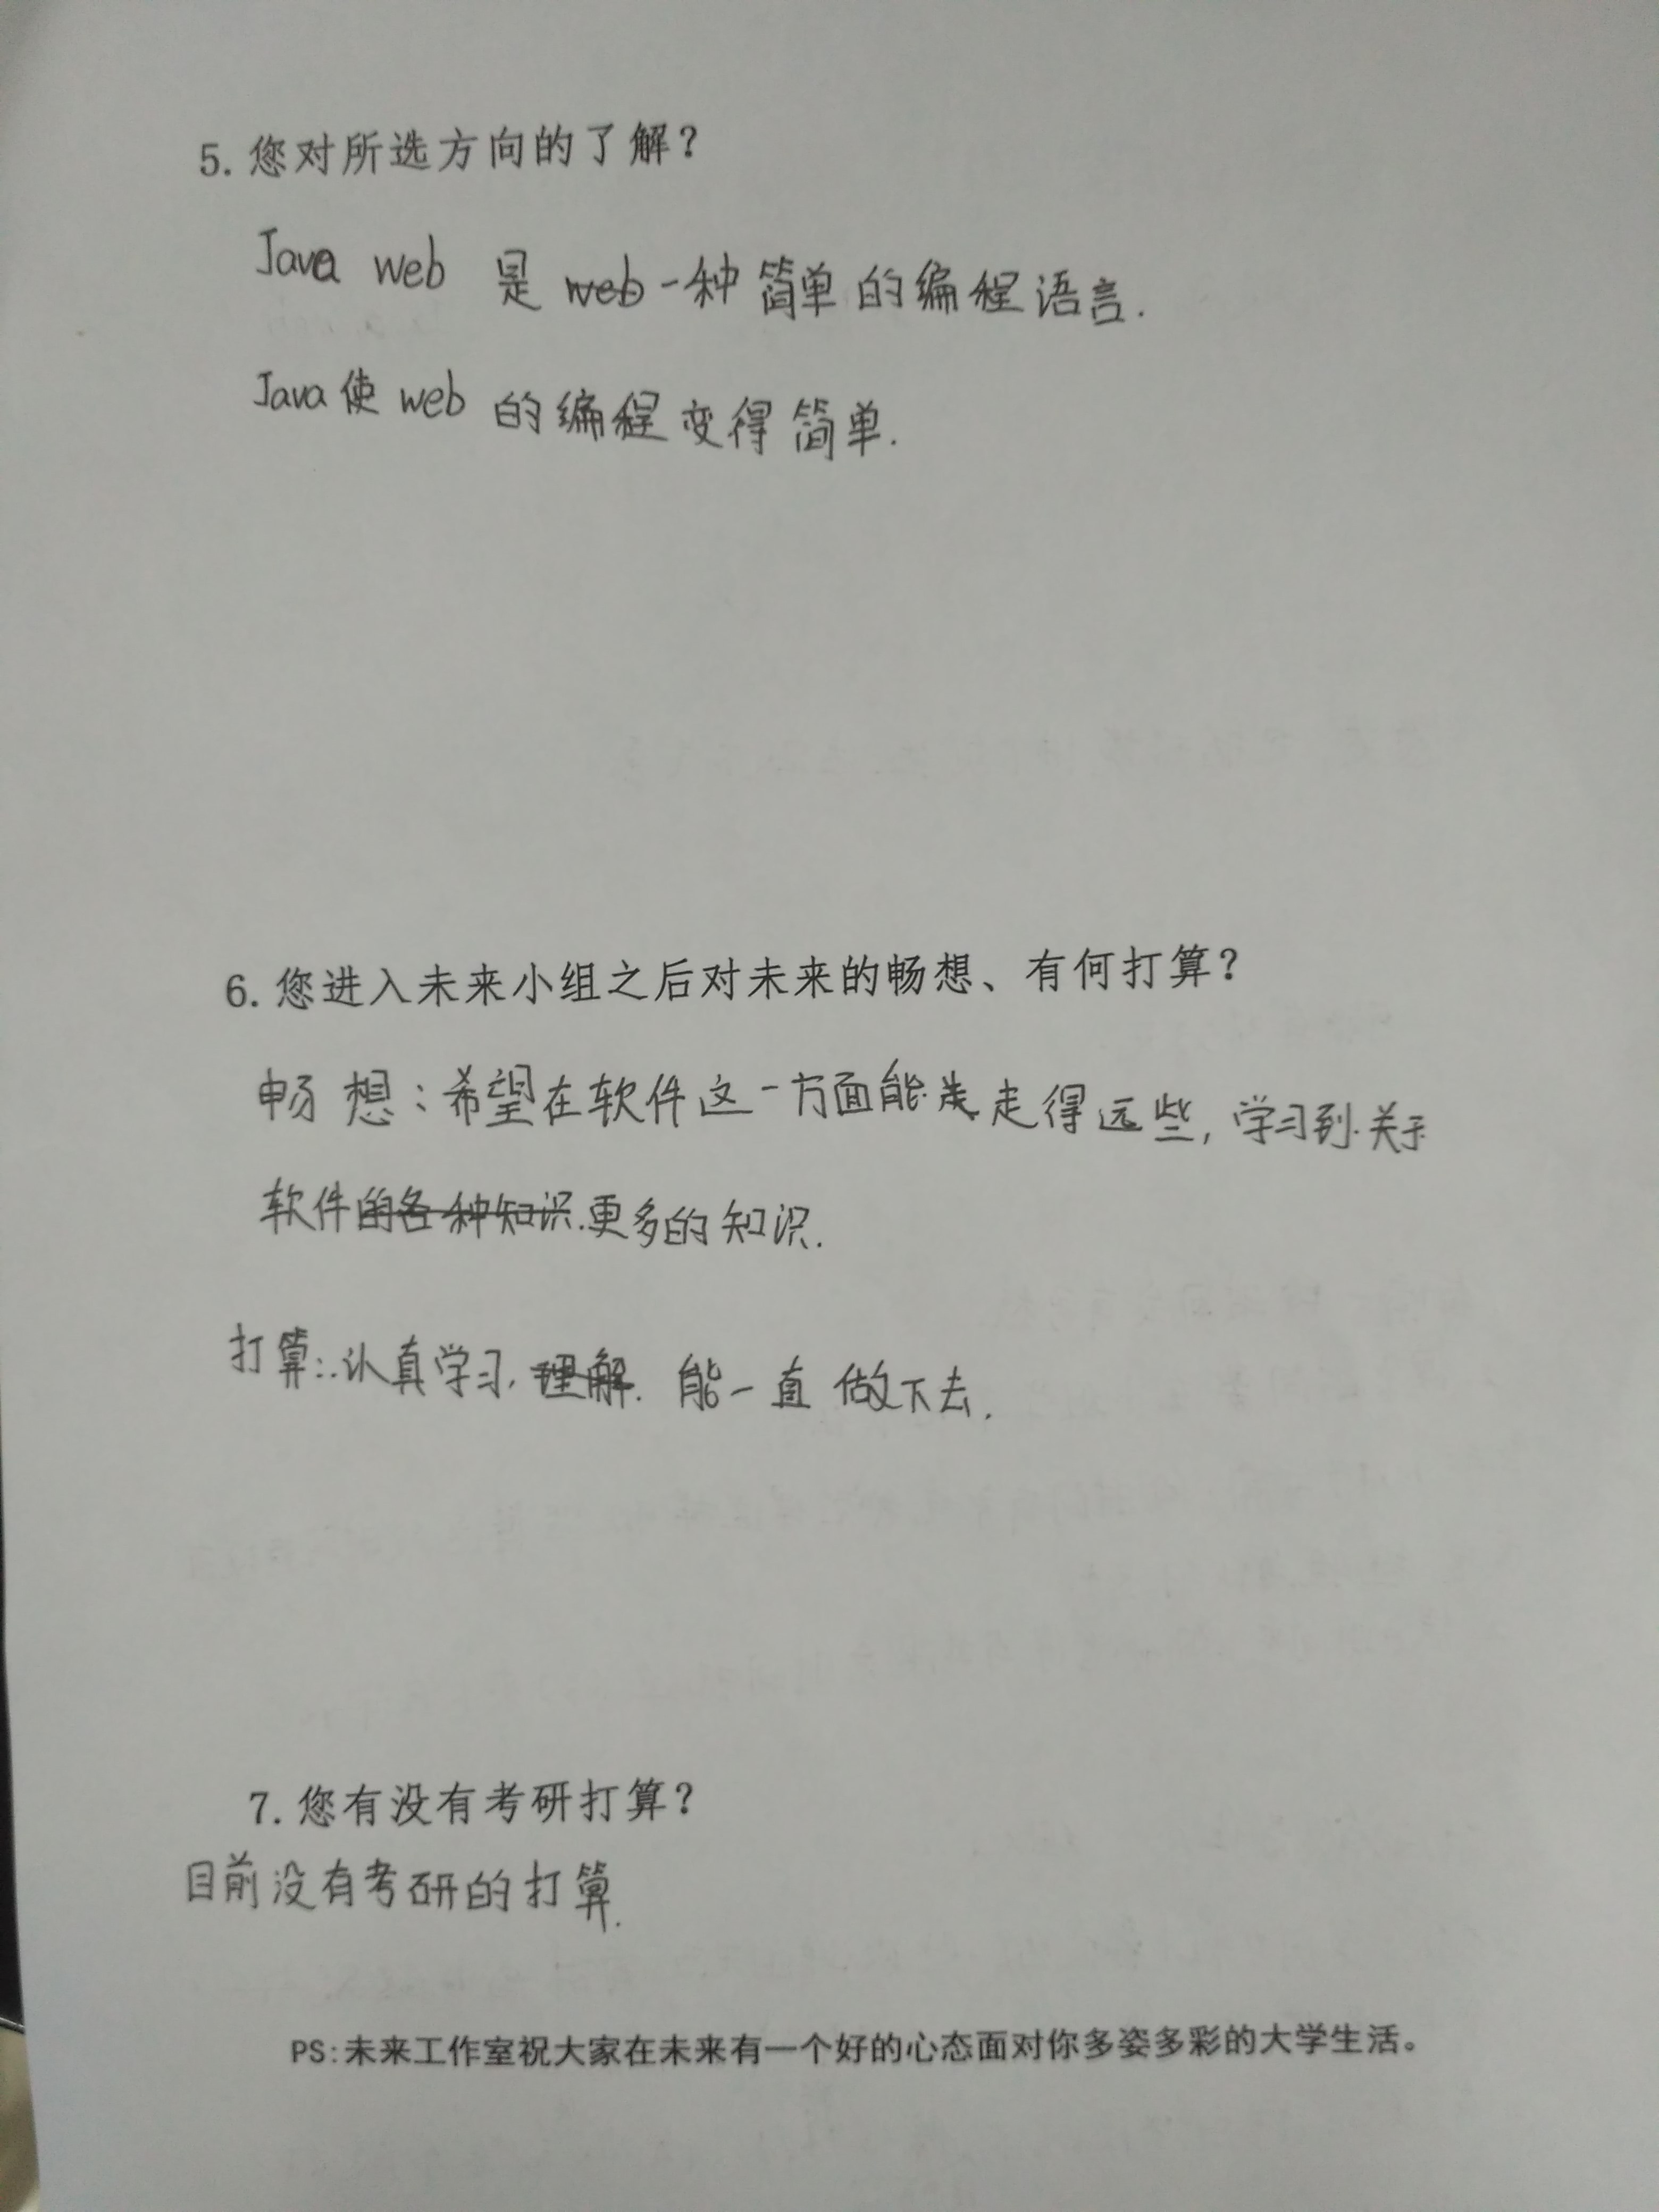 5. 您对所选方向的了解？
Java web 是 web 一种简单的编程语言.
Java使 web 的编程变得简单.
6. 您进入未来小组之后对未来的畅想、有何打算？
畅想：希望在软件这一方面能走得远些，学习到关于
软件的各种知识.更多的知识.
打算：认真学习，理解.能一直做下去.
7. 您有没有考研打算？
目前没有考研的打算.
PS:未来工作室祝大家在未来有一个好的心态面对你多姿多彩的大学生活。